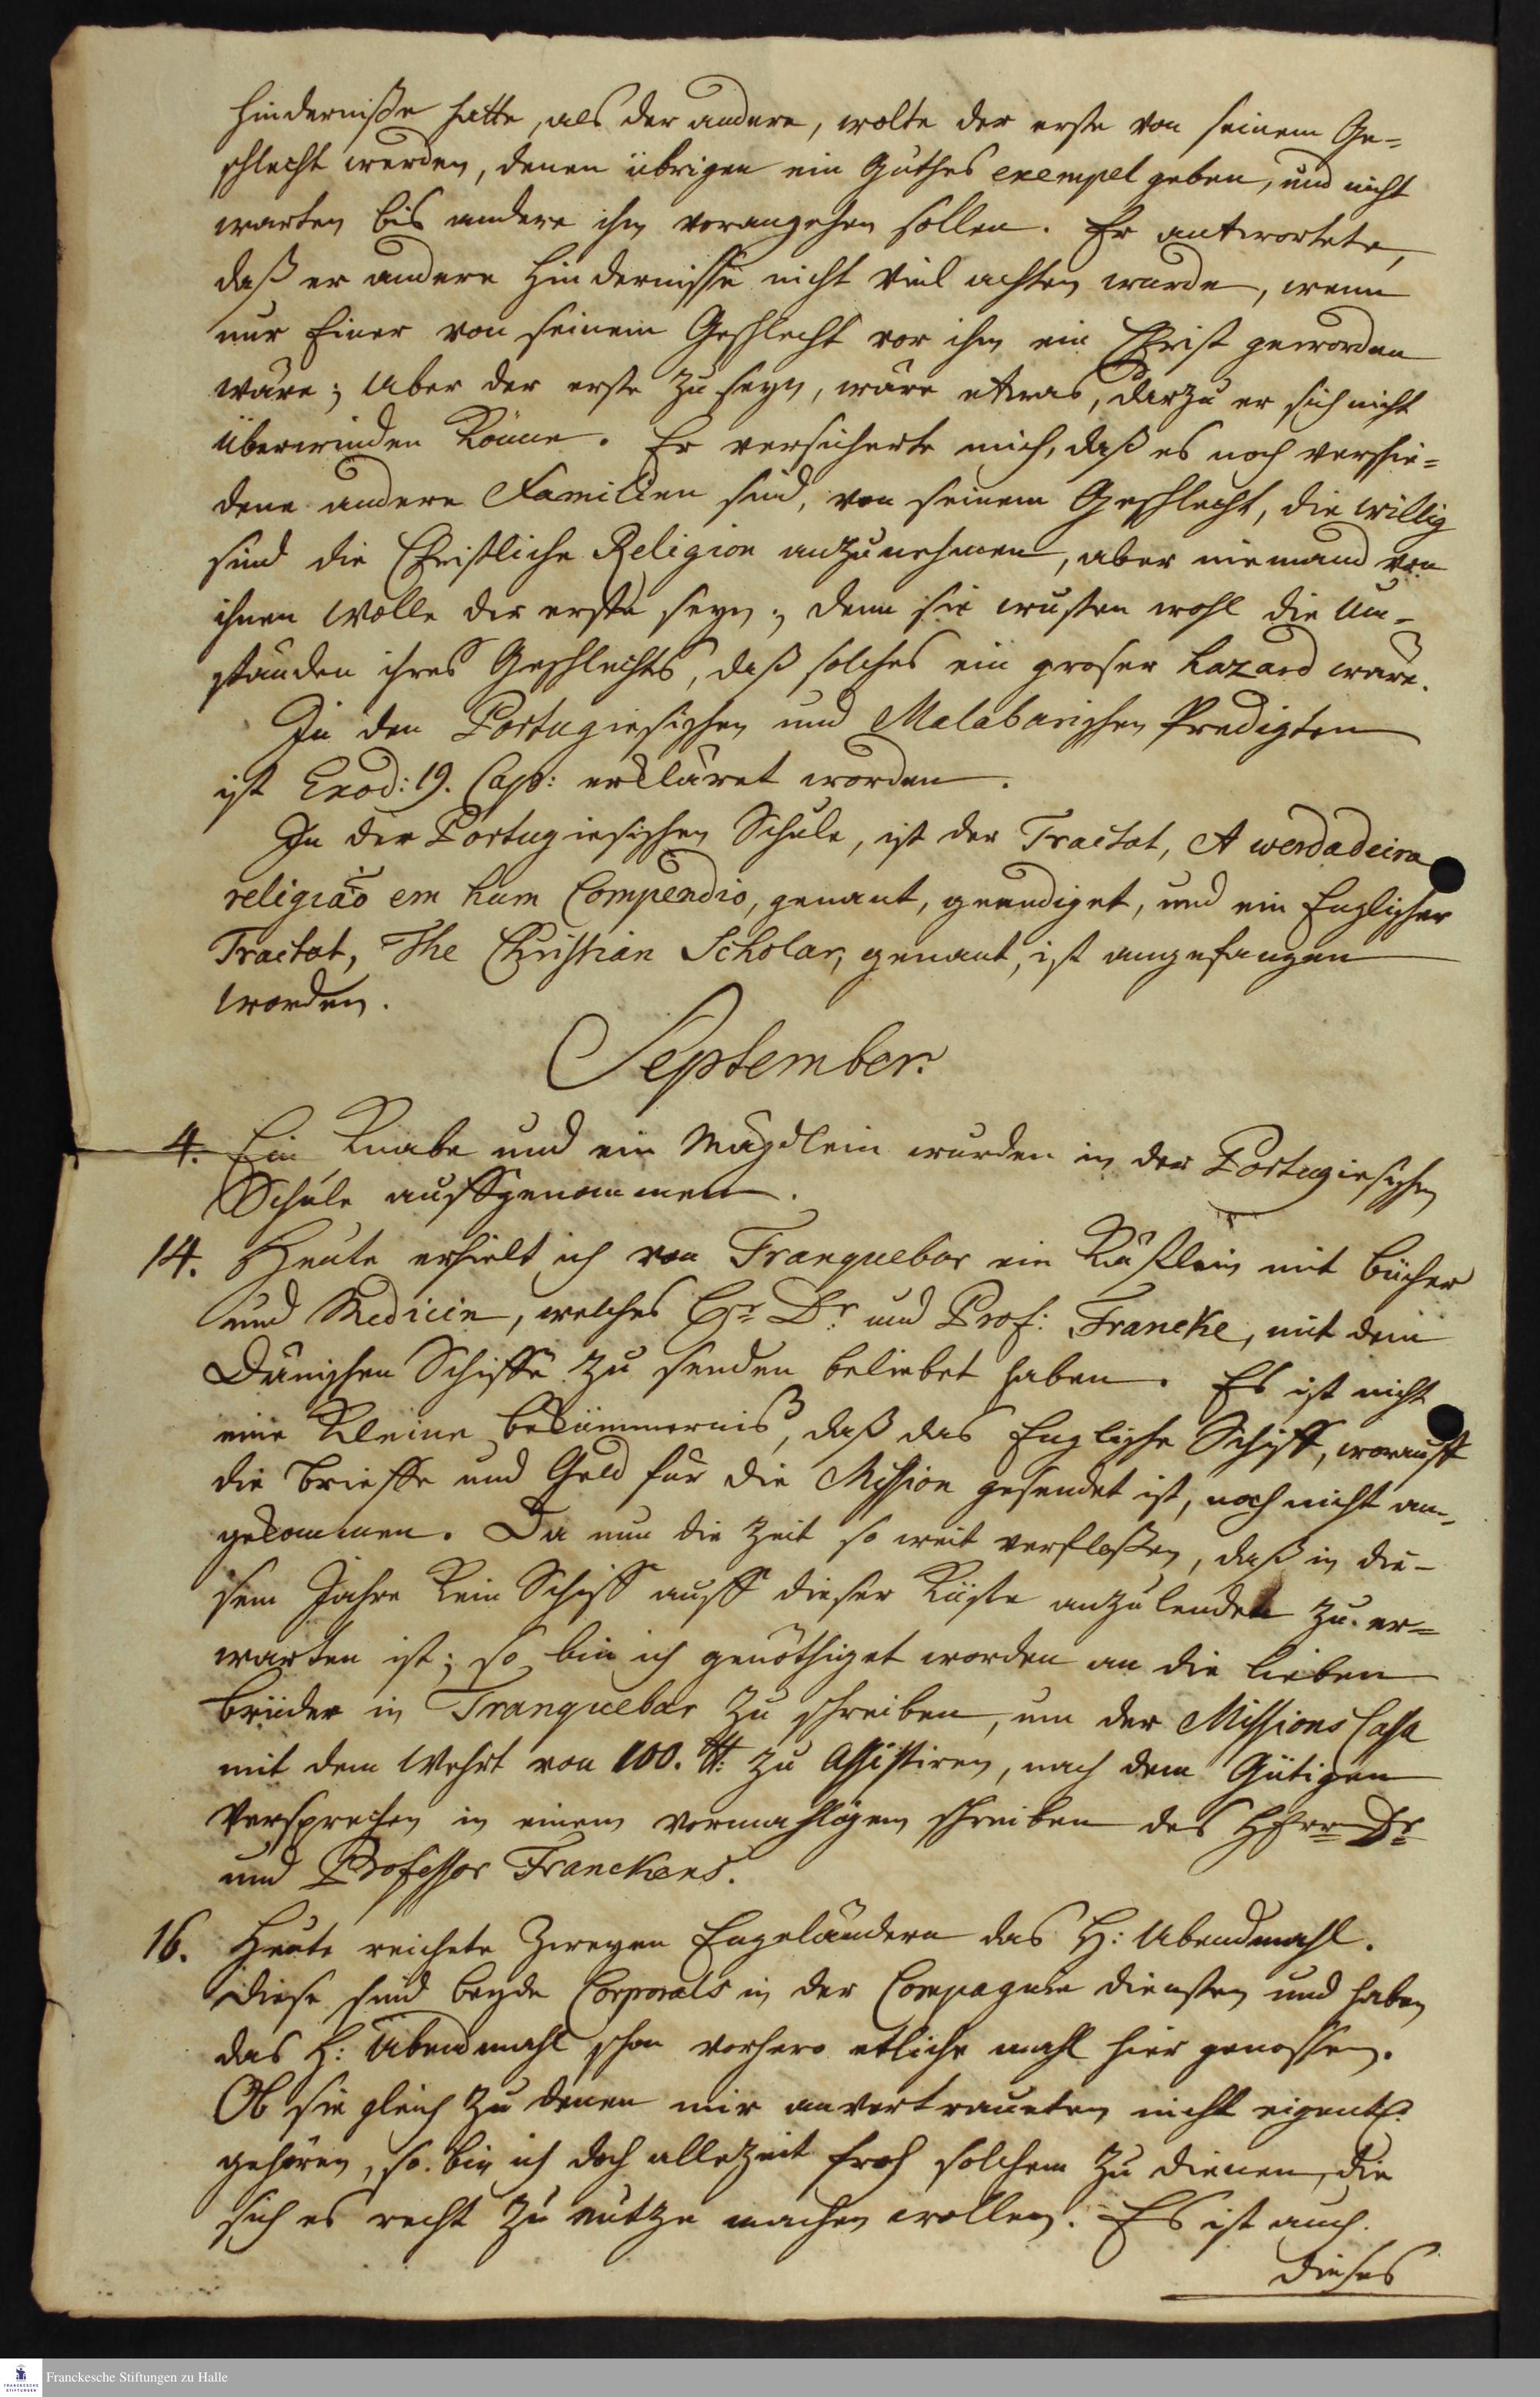 Hinderniße hatte, als der andere, wolte der erste von seinem Ge=
schlecht werden, denen übrigen ein guthes exempel geben, und nicht
warten bis andere ihm vorangehen sollen. Er antwortete,
daß er andere Hindernisse nicht viel achten wurde, wenn
nur Einer von seinem Geschlecht vor ihm ein Christ geworden
wäre; Aber der erste zu seyn, wäre etwas, darzu er sich nicht
überwinden könne. Er versicherte mich, daß es noch verschie=
dene andere Familien sind, von seinem Geschlecht, die willig
sind die Christliche Religion anzunehmen, aber niemand von
ihnen wolle der erste seyn; denn sie wusten wohl die Um=
standen ihres Geschlechts, daß solches ein groser hazard wäre.
In den Portugiesischen und Malabarischen Predigten
ist Exod: 19. Cap: erkläret worden.
In der Portugiesischen Schule, ist der Tractat, A werdadeira
religiaõ em hum Compendio, genant, geendiget, und ein Englischer
Tractat, The Christian Scholar, genant, ist angefangen
worden.
September.
4. Ein Knabe und ein Mägdlein wurden in der Portugiesischen
Schule auffgenommen.
14. Heute erhielt ich von Tranquebar ein Kästlein mit Bücher
und Medicin, welches Hr Dr und Prof: Francke, mit dem
Dänischen Schiffe zu senden beliebet haben. Es ist nicht
eine kleine bekümmerniß, daß das Englische Schiff, worauff
die Brieffe und Geld für die Mission gesendet ist, noch nicht an=
gekommen. Da nun die Zeit so weit verfloßen, daß in die=
sem Jahre kein Schiff auff dieser Küste anzulenden zu er=
warten ist; so bin ich genöthiget worden an die lieben
Brüder in Tranquebar zu schreiben, um der Missions Cassa
mit dem Wehrt von 100. ℔: zu assistiren, nach dem Gütigen
Versprechen in einem vormahligen schreiben des Herrn Dr
und Professor Franckens.
16. Heute reichete zweyen Engeländern das H: Abendmahl.
Diese sind beyde Corporals in der Compagnie diensten und haben
das H: Abendmahl schon vorhero etliche mahl hier genossen.
Ob sie gleich zu denen mir anvertraueten nicht eigentl.
gehören, so bin ich doch allezeit froh solchem zu dienen, die
sich es recht zu nutze machen wollen. Es ist auch
dieses
Franckesche Stiftungen zu Halle